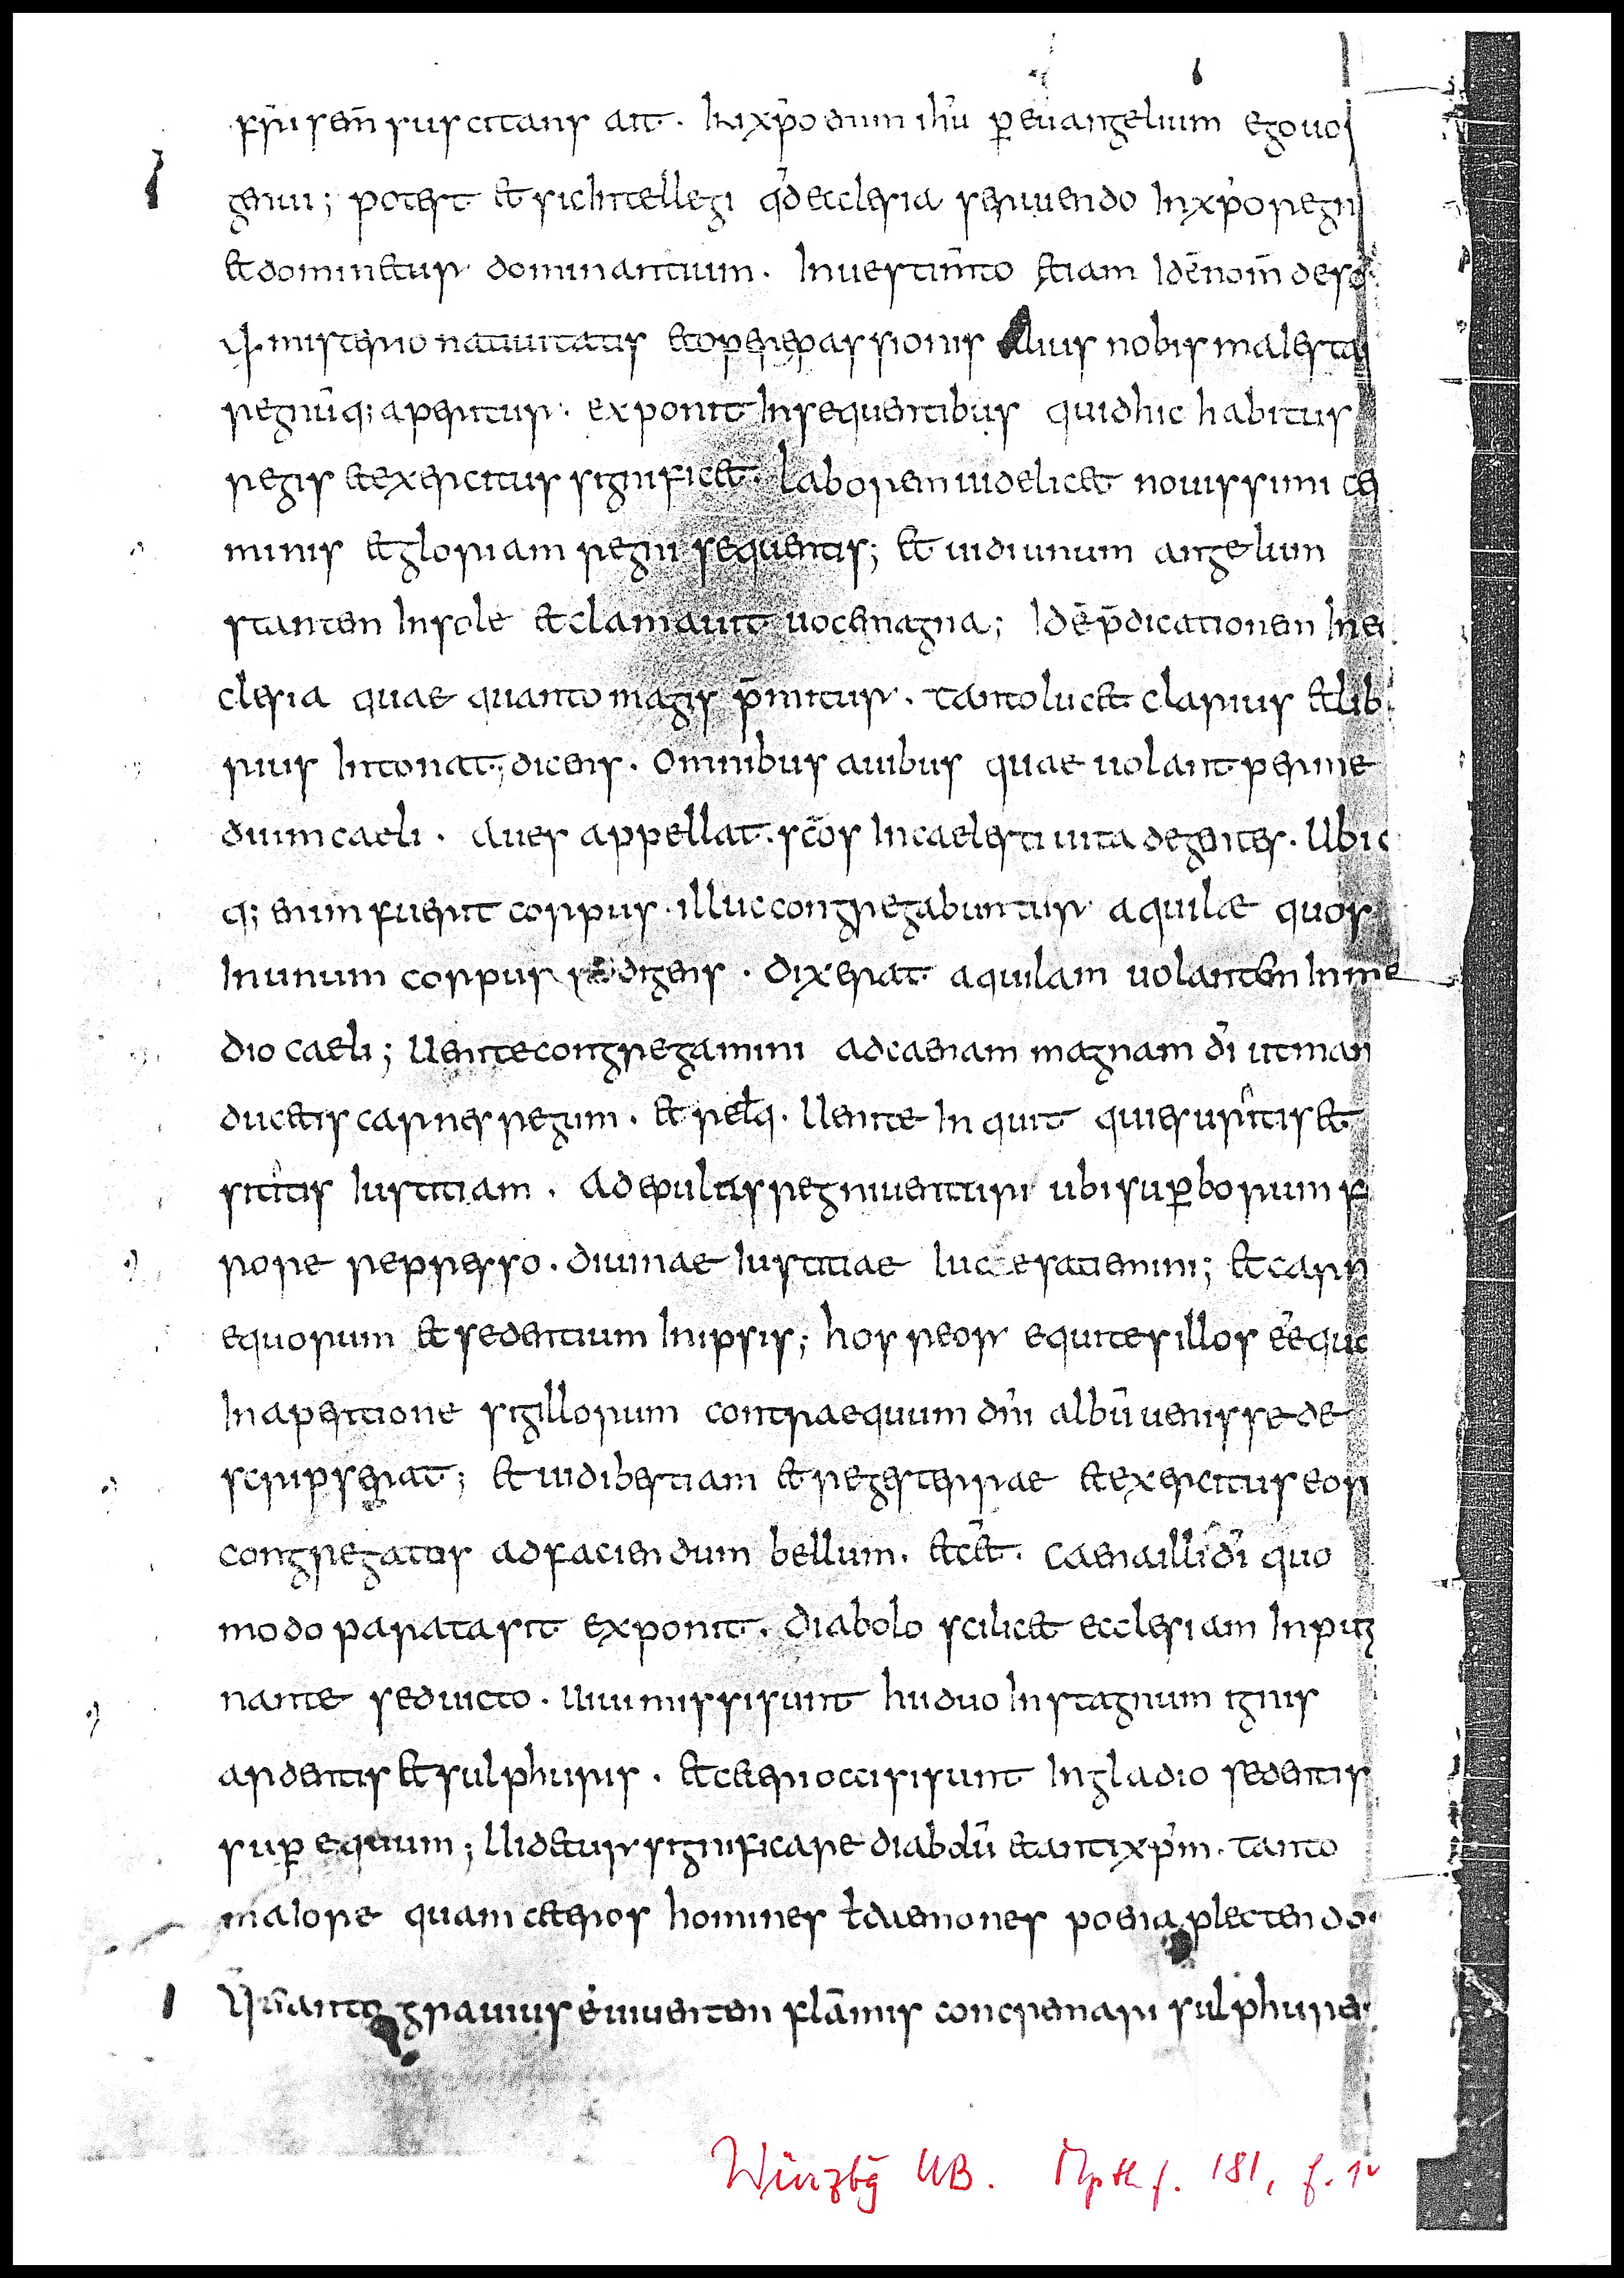 fr̄ıı sem̄ suscitans ait. Inxp̄o enim ihū ꝑ euangelium ego uos
genui; potest et sic intellegi qđ ecclesia seruiendo Inxp̄o regn
et dominetur dominantium. Inuestim̄to etiam Idē nom̄ desc
quia misterio natiuitatis et opere passionis illius nobis maiestas
regnūq; aperitur. exponit Insequentibus quid hic habitus
regis et exercitus significet. laborem uidelicet nouissimi cer
minis et gloriam regni sequentis; et uidi unum angelum
stantem Insole et clamauit uoce magna; Idē p̄dicationem In ec
clesia quae quanto magis p̄mitur. tanto lucet clarius et lib
rius Intonat; dicens. omnibus auibus quae uolant per me
dium caeli. aues appellat. sc̄os Incaelesti uita degentes. Ubic
q; enim fuerit corpus. illuc congregabuntur aquilæ quos
Inunum corpus redigens. dixerat aquilam uolantem In me
dio caeli; Uenite congregamini ad caenam magnam dī ut man
ducetis carnes regum. et relq̄. Uenite Inquit qui esuritis et
sititis Iustitiam. ad epulas regni uenturi ubi superborum fu
rore represso. diuinae Iustitiae luce satiemini; et carn
equorum et sedentium Inipsis; hos reor equites illos ēē quo
Inapertione sigillorum contra equum dn̄i albū uenisse de
scripserat; et uidi bestiam et reges terrae et exercitus eor
congregatos ad faciendum bellum. et cet̄. Caena illi dī quo
modo parata sit exponit. diabolo scilicet ecclesiam Inpug
nante sed uicto. Uiui missi sunt hii duo Instagnum ignis
ardentis et sulphuris. et ceteri occisi sunt Ingladio sedentis
suꝑ equum; Uidetur significare diabolū et antixp̄m. tanto
maiore quam ceteros homines ł daemones poena plectendos
Quanto grauius ē uiuentem flāmis concremari sulphureis
Würzbg UB. Mp th f. 181, f. 1v